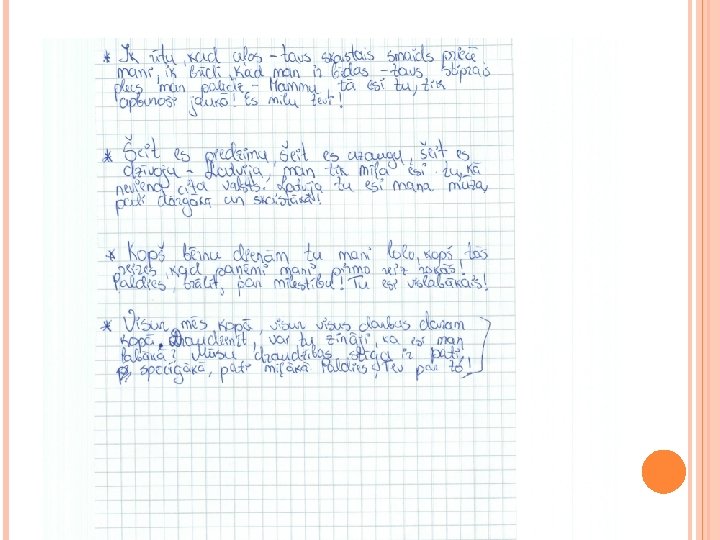 * Ik rītu, kad ceļos - tavs skaistais smaids priecē
mani, ik brīdi, kad man ir bēdas - tavs stiprais
plecs man palīdz - Mammu, tā esi tu, tik
apburoši jaukā! Es mīlu tevi!
* Šeit es piedzimu, šeit es uzaugu, šeit es
dzīvoju - Latvija, man tik mīļa esi tu, kā
neviena cita valsts. Latvija tu esi mana mūža,
pati dārgākā un skaistākā!
* Kopš bērnu dienām tu mani loko, kopš tās
reizes, kad paņēmi mani pirmo reiz rokās!
Paldies, brālīt, par mīlestību! Tu esi vislabākais!
* Visur mēs kopā, visur visus darbus daram
kopā. Draudzenīt, vai tu zināji, ka esi man
labākā? Mūsu draudzības ir pati
spēcīgākā, pati mīļākā. Paldies Tev par to!